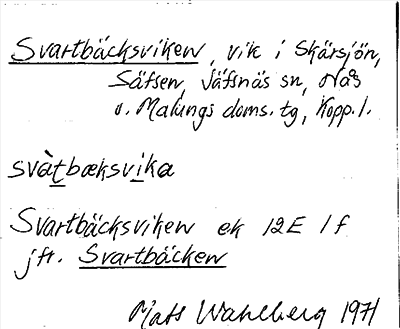 Svartbäcksviken, vik i Skärsjön,
Säfsen, Säfsnäs sn, Nås
o. Malungs doms. tg, Kopp. l.
svàt̲bæksvi̲ka
Svartbäcksviken ek 12E 1f
jfr. Svartbäcken
Mats Wahlberg 1971